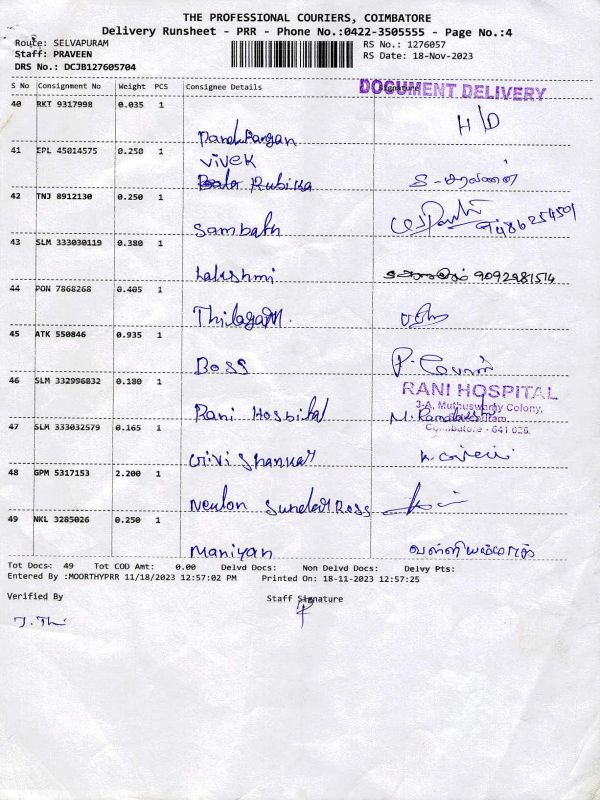 THE PROFESSIONAL COURIERS, COIMBATORE
Delivery Runsheet - PRR - Phone No.:0422-3505555 - Page No.:4
Route: SELVAPURAM RS No.: 1276057
Staff: PRAVEEN RS Date: 18-Nov-2023
DRS No.: DCJB127605704
S No Consignment No Weight PCS Consignee Details Signature
DOCUMENT DELIVERY
40 RKT 9317998 0.035 1
Pandurangan H/D
41 EPL 45014575 0.250 1 Vivek
Rubika
42 TNJ 8912130 0.250 1
Sambath 9486254501
43 SLM 333030119 0.380 1
Lakshmi 9092981514
44 PON 7868268 0.405 1
Thilagam
45 ATK 550846 0.935 1
Boss
46 SLM 332996832 0.180 1 RANI HOSPITAL
3-A, Muthuswamy Colony,
Rani Hospital
47 SLM 333032579 0.165 1 Coimbatore - 641 026.
Givi Shankar
48 GPM 5317153 2.200 1
Newlon Sundar Ross
49 NKL 3285026 0.250 1
Maniyan
Tot Docs: 49 Tot COD Amt: 0.00 Delvd Docs: Non Delvd Docs: Delvy Pts:
Entered By :MOORTHYPRR 11/18/2023 12:57:02 PM Printed On: 18-11-2023 12:57:25
Verified By Staff Signature